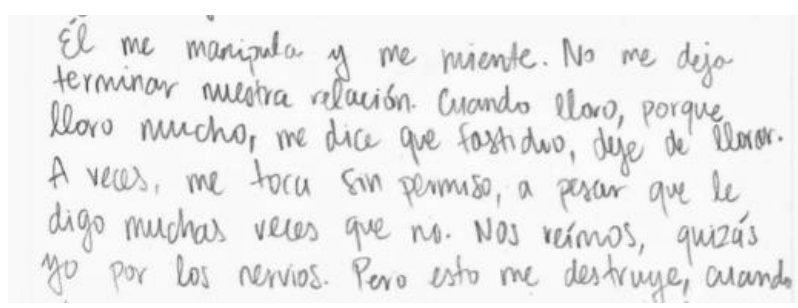 Él me manipula y me miente. No me deja
terminar nuestra relación. Cuando lloro, porque
lloro mucho, me dice que fastidio, deje de llorar.
A veces, me toca sin permiso, a pesar que le
digo muchas veces que no. Nos reímos, quizás
yo por los nervios. Pero esto me destruye, cuando